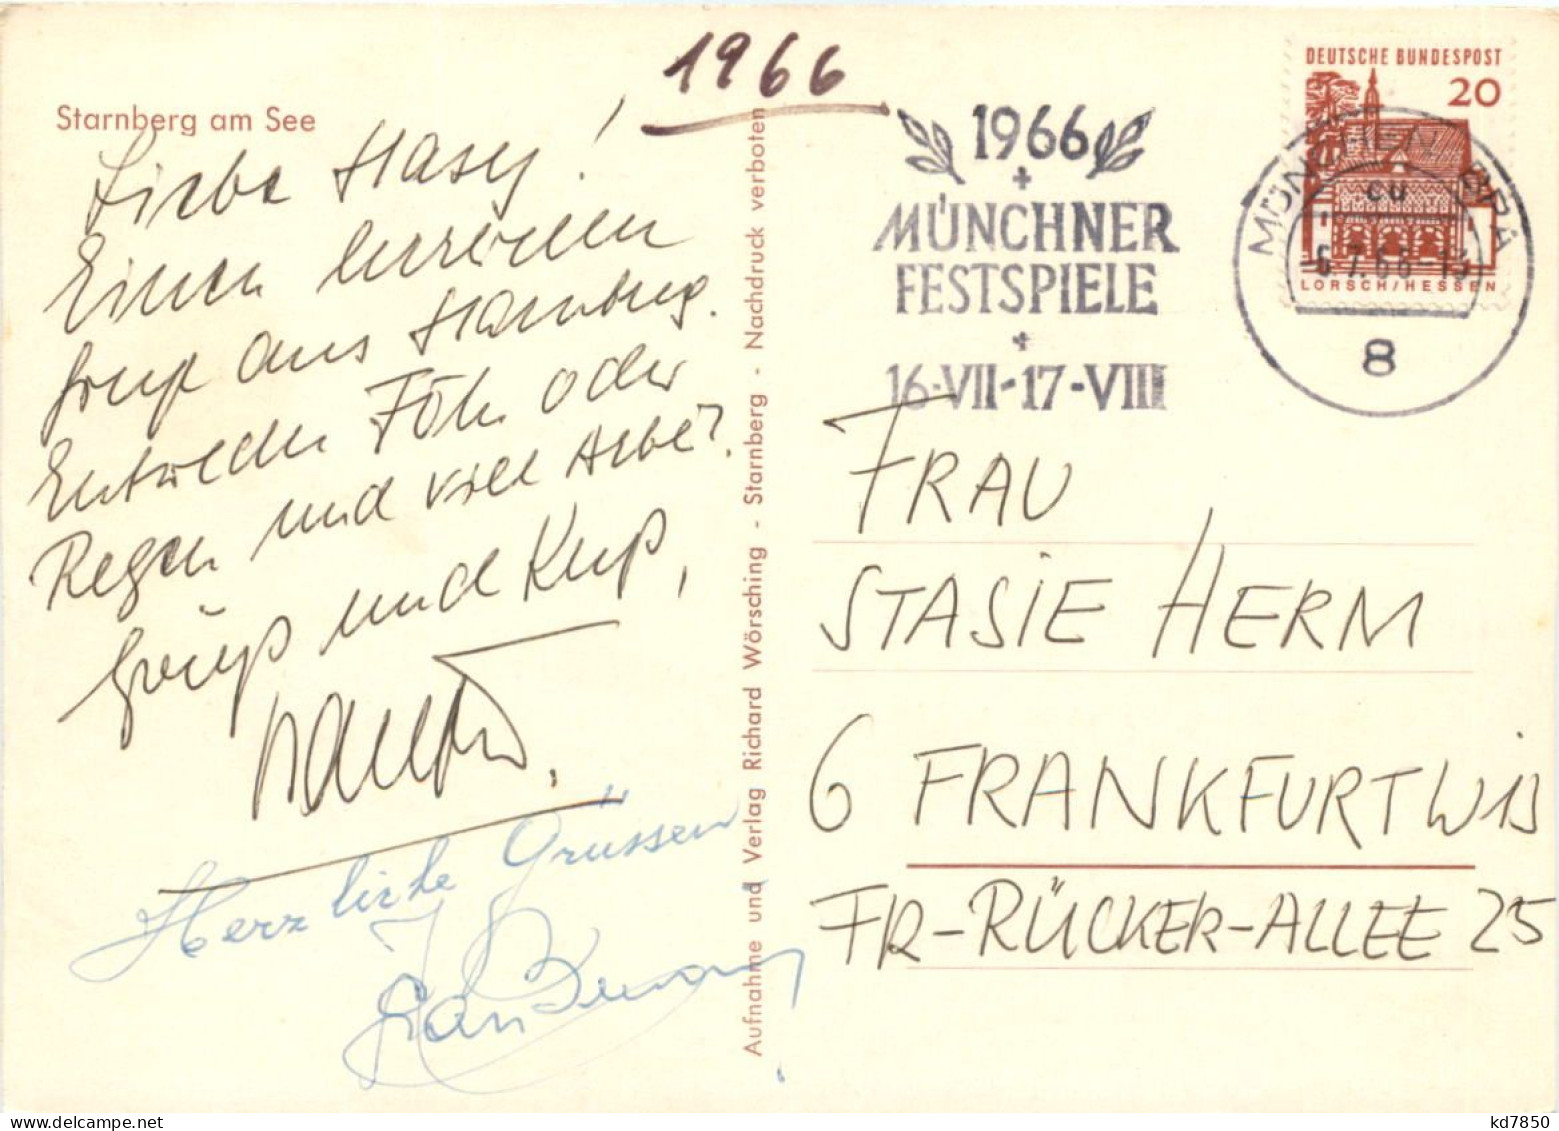 Starnberg am See
1966
Liebe Stasy!
Einen lieben
Gruß aus Starnberg.
Entweder Föhn oder
Regen und viel Arbeit.
Gruß und Kuß,
Herzliche Grüssen
Aufnahme und Verlag Richard Wörsching - Starnberg - Nachdruck verboten
1966
MÜNCHNER
FESTSPIELE
16-VII-17-VIII
DEUTSCHE BUNDESPOST
20
LORSCH/HESSEN
MÜNCHEN
cu
6.7.66-
8
FRAU
STASIE HERM
6 FRANKFURT W 13
FR-RÜCKER-ALLEE 25
kd7850